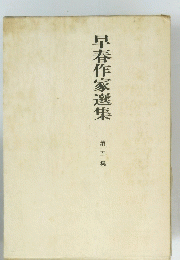 早春作家選集
第十集